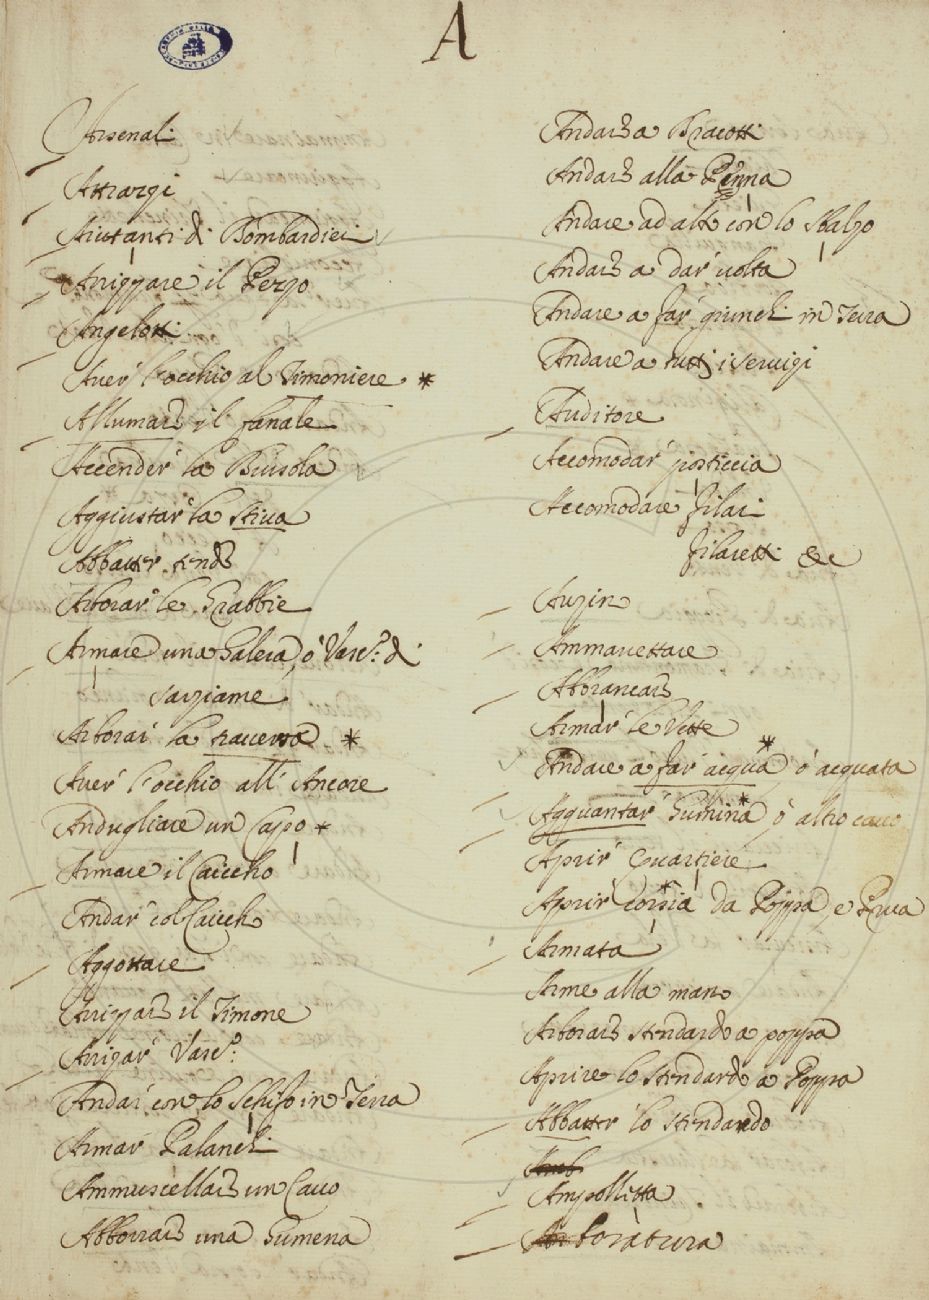 A
Arsenali
Attrazzi
Aiutanti di Bombardieri
il Pezzo
Angelotti
Aver l'occhio al Timoniere *
Allumare il fanale
Accender la Bussola
Aggiustar la Stiva
Abbatter tende
Arborar le Gabbie
Armare una Galera, ò Vasc.º di
sarziame
Arborar la traversa *
Aver l'occhio all'Ancore
Andugliare un Capo *
Armare il Caiccho
Andar col Caiccho
Aggottare
il Timone
Vasc.º
Andar con lo Schifo in Terra
Armar Palanchi
Ammuscellare un Cavo
Abbozzare una Gumena
Andare a Bracotti
Andare alla Penna
Andare ad alto con lo Sbalzo
Andare a dar volta
Andare a far giunchi in Terra
Andare a tutti i servigi
Auditore
Accomodar posticcia
Accomodare filari
filaretti &c
Auzin
Ammanettare
Abbrancare
Armar le Vette
Andare a far acqua * ò acquata
Agguantar Gumina * ò altro cavo
Aprir Quartiere
Aprir corsia * da Poppa e Prua
Armata
Arme alla mano
Arborare stendardo a poppa
Aprire lo stendardo a Poppa
Abbatter lo stendardo
Amb.
Ampolletta
Arboratura